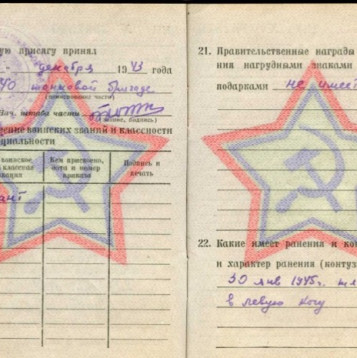 ую присягу принял
декабря 1943 года
40 танковой бригаде
Зач. штаба части
своение воинских званий и классности
циальности
воинское
классная
звания
Кем присвоено,
дата и номер
приказа
Подпись и
печать
ант
21. Правительственные награды
ния нагрудными знаками
подарками не имеет
22. Какие имеет ранения и кон
и характер ранения (контуз
30 янв 1945г.
в левую ногу